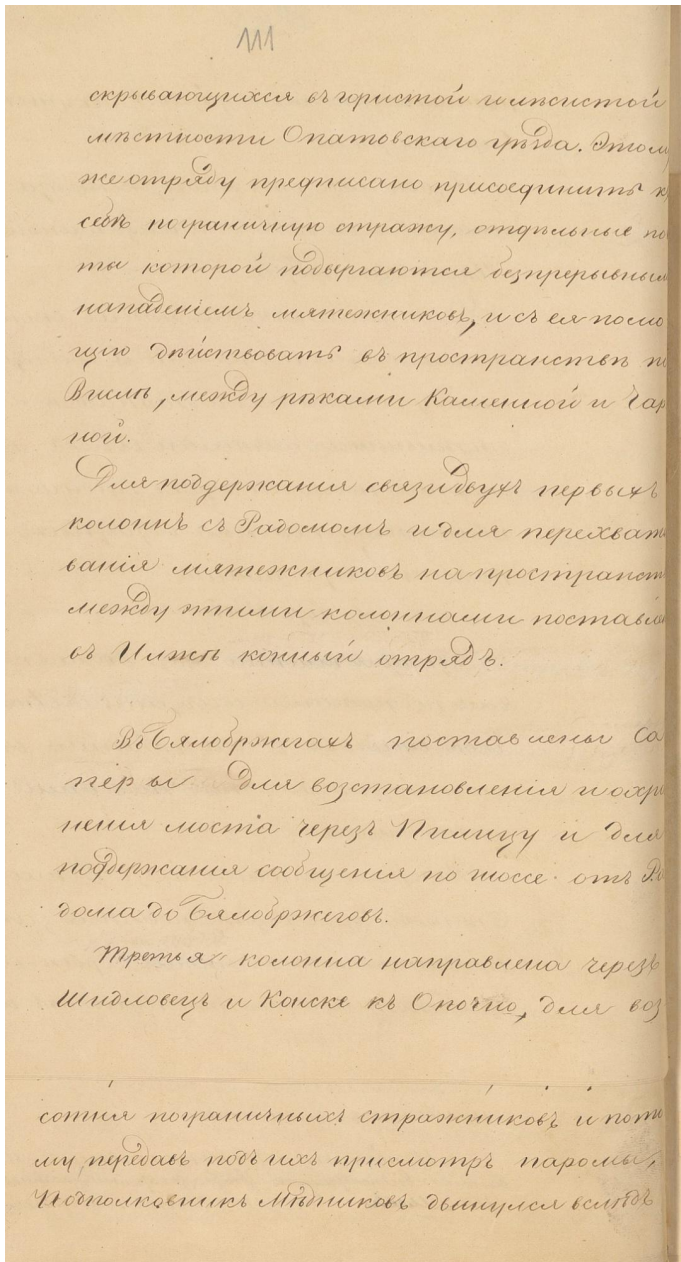 111
скрывающихся въ гористой и лѣсистой
мѣстности Опатовскаго уѣзда. Этому
же отряду предписано присоединить к
себѣ пограничную стражу, отдѣльные по
ты которой подвергаются безпрерывным
нападеніемъ мятежниковъ, и съ ея помо
щію дѣйствовать въ пространствѣ по
Вислѣ, между рѣками Каменной и Чар
ной.
Для поддержанія связи двухъ первыхъ
колоннъ съ Радомомъ и для перехваты
ванія мятежниковъ на пространст
между этими колоннами поставле
въ Илжѣ конный отрядъ.
Въ Бялобржегахъ поставлены са
перы для возстановленія и охра
ненія моста черезъ Пилицу и для
поддержанія сообщенія по шоссе отъ Ра
дома до Бялобржеговъ.
Третья колонна направлена черезъ
Шидловецъ и Конске къ Опочно, для воз
сотня пограничныхъ стражниковъ и пото
му, передавъ подъ ихъ присмотръ паромы,
Подполковникъ Мѣдниковъ двинулся вслѣдъ